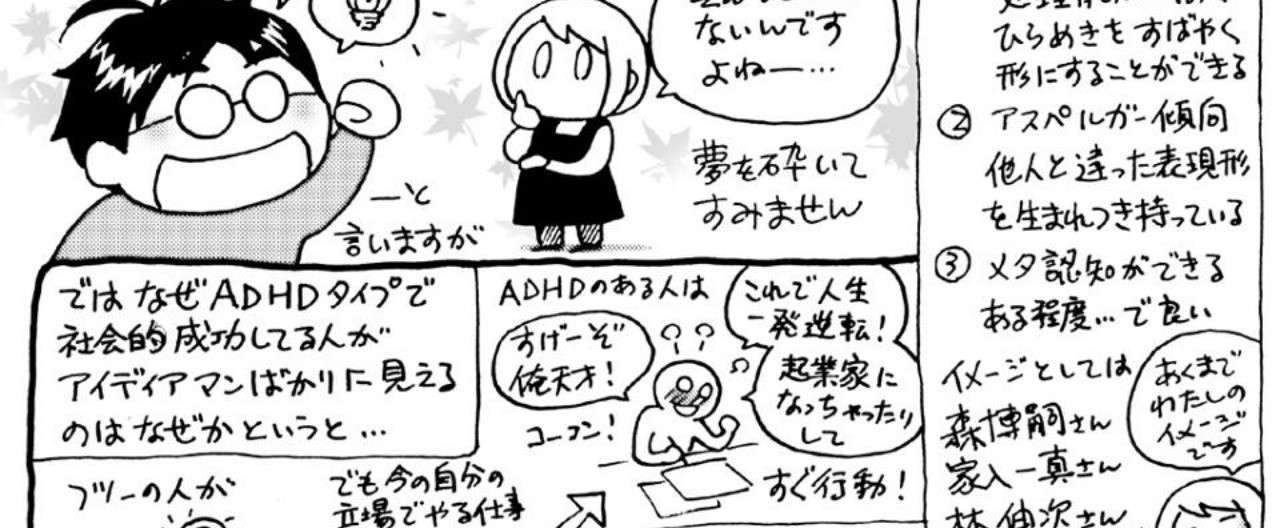 ないんです
よねー…
夢を砕いて
すみません
―と
言いますが
では なぜADHDタイプで
社会的成功してる人が
アイディアマンばかりに見える
のは なぜかというと…
ADHDのある人は
すげーぞ
俺天才!
コーフン!
これで人生
一発逆転!
起業家に
なっちゃったり
して
すぐ行動!
フツーの人が
でも今の自分の
立場でやる仕事
ひらめきをすばやく
形にすることができる
② アスペルガー傾向
他人と違った表現形
を生まれつき持っている
③ メタ認知ができる
ある程度…で良い
イメージとしては
森博嗣さん
家入一真さん
林伸次さん
あくまで
わたしの
イメージ
です